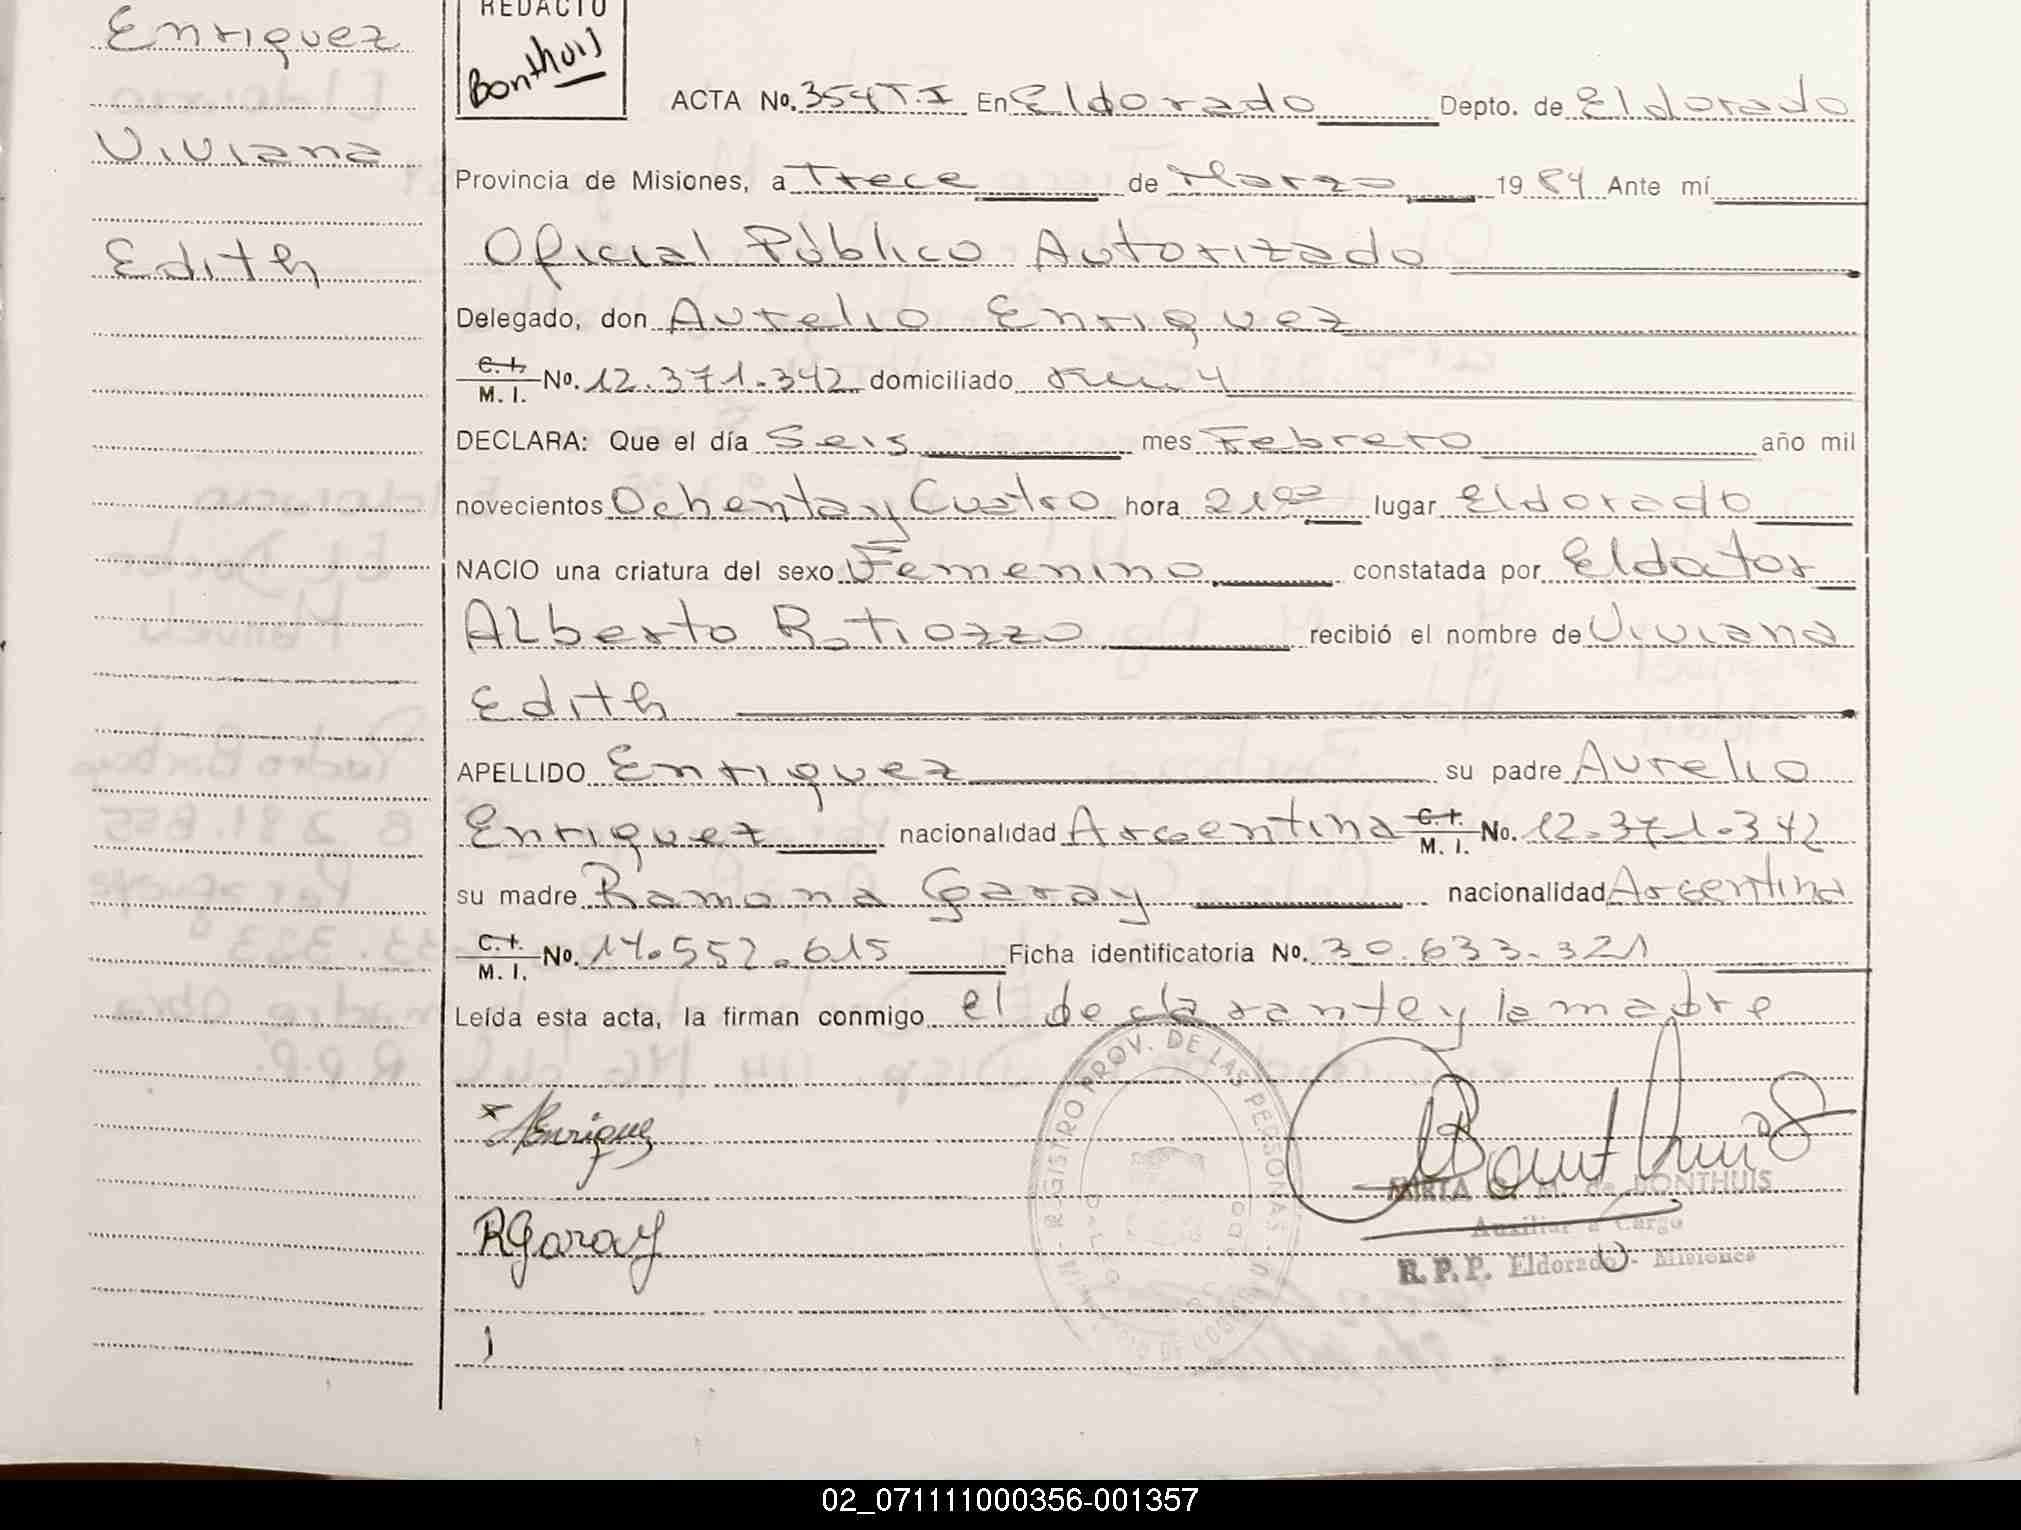 Enriquez
Viviana
Edith
REDACTO
Bonthuis
ACTA No. 354 T.I En Eldorado Depto. de Eldorado
Provincia de Misiones, a Trece de Marzo 19 84 Ante mí
Oficial Público Autorizado
Delegado, don Aurelio Enriquez
C. I. M. I. No. 12.371.342 domiciliado Km. 4
DECLARA: Que el día Seis mes Febrero año mil
novecientos Ochenta y Cuatro hora 21 00 lugar Eldorado
NACIO una criatura del sexo Femenino constatada por
Alberto recibió el nombre de Viviana
Edith
APELLIDO Enriquez su padre Aurelio
Enriquez nacionalidad Argentina C. I. M. I. No. 12.371.342
su madre Ramona Garay nacionalidad Argentina
C. I. M. I. No. 14.552.615 Ficha identificatoria No. 30.633.321
Leída esta acta, la firman conmigo el declarante y la madre
REGISTRO PROV. DE LAS PERSONAS
Enriquez
Bonthuis
MIRTA de BONTHUIS
Auxiliar a Cargo
R. P. P. Eldorado - Misiones
RGaray
02_071111000356-001357